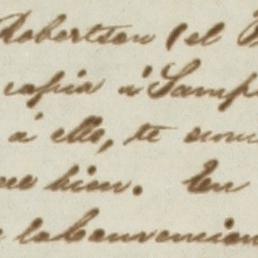 Robertson (el
copia á Samp
á ello, te
ue bien. En
la Convencion